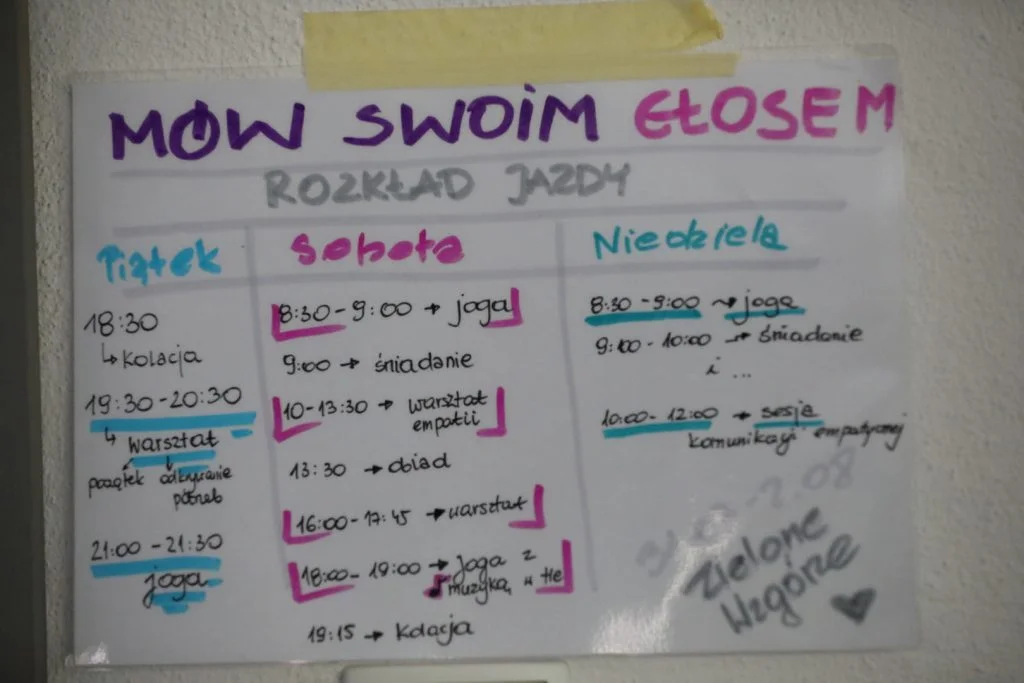 MÓW SWOIM GŁOSEM
ROZKŁAD JAZDY
Piątek
18:30
↳ kolacja
19:30-20:30
↳ warsztat
początek odkrywanie
potrzeb
21:00-21:30
joga
Sobota
8:30-9:00 → joga
9:00 → śniadanie
10-13:30 → warsztat
empatii
13:30 → obiad
16:00-17:45 → warsztat
18:00-19:00 → joga z
muzyką w tle
19:15 → kolacja
Niedziela
8:30-9:00 → joga
9:00-10:00 → śniadanie
i ...
10:00-12:00 → sesja
komunikacji empatycznej
2.08
Zielone
Wzgórze ♥